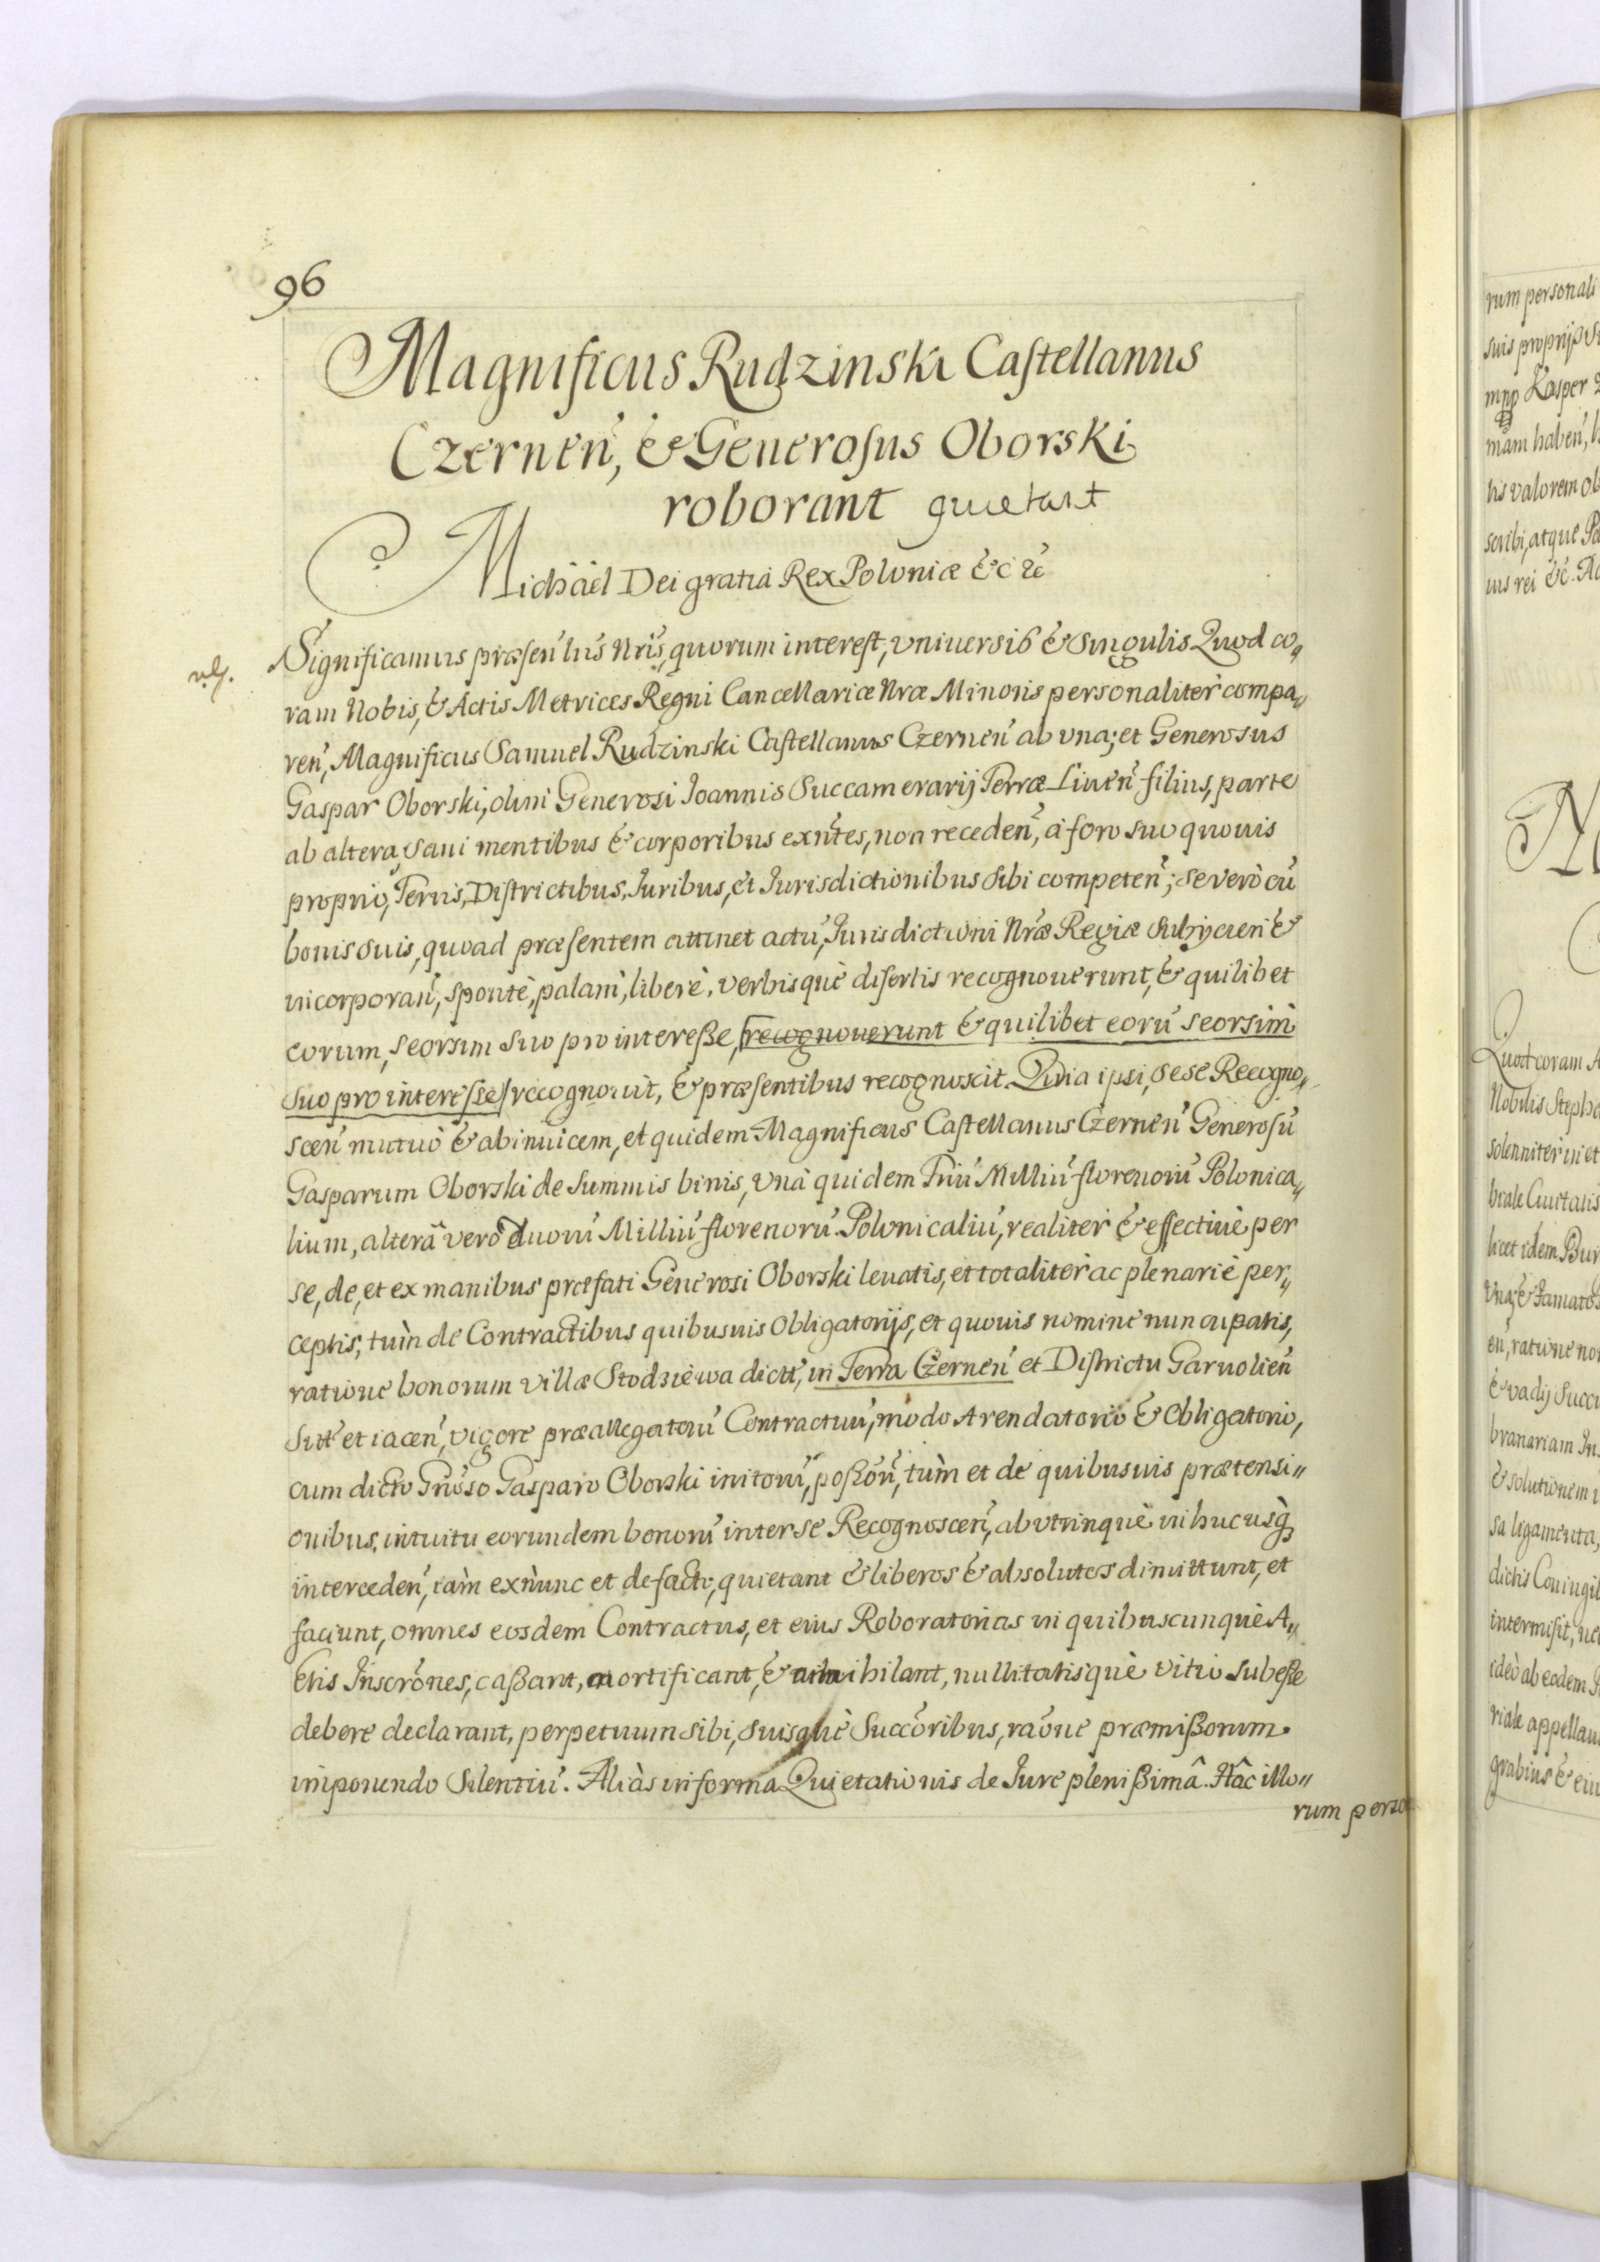 96
Magnificus Rudzinski Castellanus
Czernen̄, & Generosus Oborski
roborant quietant
Michäel Dei gratia Rex Poloniæ &c &c
Significamus præsentibus Nr̄is, quorum interest, vniuersis & singulis Quod co„
ram Nobis, & Actis Metrices Regni Cancellariæ Nr̄æ Minoris personaliter compa„
ren̄, Magnificus Samuel Rudzinski Castellanus Czernen̄ ab vna; et Generosus
Gaspar Oborski, olim Generosi Joannis Succamerarij Terræ Liuen̄ filius, parte
ab altera, sani mentibus & corporibus exn̄tes, non receden̄, à foro suo quouis
proprio, Terris, Districtibus, Juribus, et Jurisdictionibus sibi competen̄; se verò cū
bonis suis, quoad præsentem attinet actū, Jurisdictioni Nr̄æ Regiæ subijcien̄ &
incorporan̄, spontè, palam̀, liberè, verbisquè disertis recognouerunt, & quilibet
eorum, seorsim suo pro intereße, recognouerunt & quilibet eorū seorsim̀
suo pro interesse recognouit, & præsentibus recognoscit. Quia ipsi, sese Recogno„
scen̄ mutuò & abinuicem, et quidem Magnificus Castellanus Czernen̄ Generosū
Gasparum Oborski de summis binis, vnâ quidem Triū Milliū florenorū Polonica„
lium, alterâ verò duorū Milliū florenorū Polonicaliū, realiter & effectiuè per
se, de, et ex manibus præfati Generosi Oborski leuatis, et totaliter ac plenariè per„
ceptis, tum̀ de Contractibus quibusuis Obligatorijs, et quouis nomine nuncupatis,
ratione bonorum villæ Stodziewa dictæ, in Terra Czernen̄ et Districtu Garuolien̄
sitt̄ et iacen̄, vigore præallegatorū Contractuū, modo Arendatorio & Obligatorio,
cum dicto Gn̄so Gasparo Oborski initorū, poßon̄, tum̀ et de quibusuis prætensi„
onibus, intuitu eorundem bonorū inter se Recognoscen̄, ab vtrinquè in hucusq̄
interceden̄, iam̀ exnunc et de facto, quietant & liberos & absolutos dimittunt, et
faciunt, omnes eosdem Contractus, et eius Roboratorias in quibuscunquè A„
ctis Inscrōnes, caßant, mortificant, & annihilant, nullitatisquè vitio subeße
debere declarant, perpetuum sibi, suisquè Succōribus, raōne præmißorum
imponendo silentiū. Aliàs in forma Quietationis de Jure plenißimâ. Hâc illo„
rum perso
rum personali
suis proprijs
mpp Kasper
mam haben̄,
lis valorem ob
scribi, atque
ius rei &c. Ac
Quod coram A
Nobilis Stepha
solenniter in et
licet idem Bur
vnà, & Famatos
en̄, ratione no
& vadij Succ
branariam In
& solutionem
sa ligamenta,
dictis Coniugi
intermisit,
ideò ab eodem
riale appellau
grabius & eiu